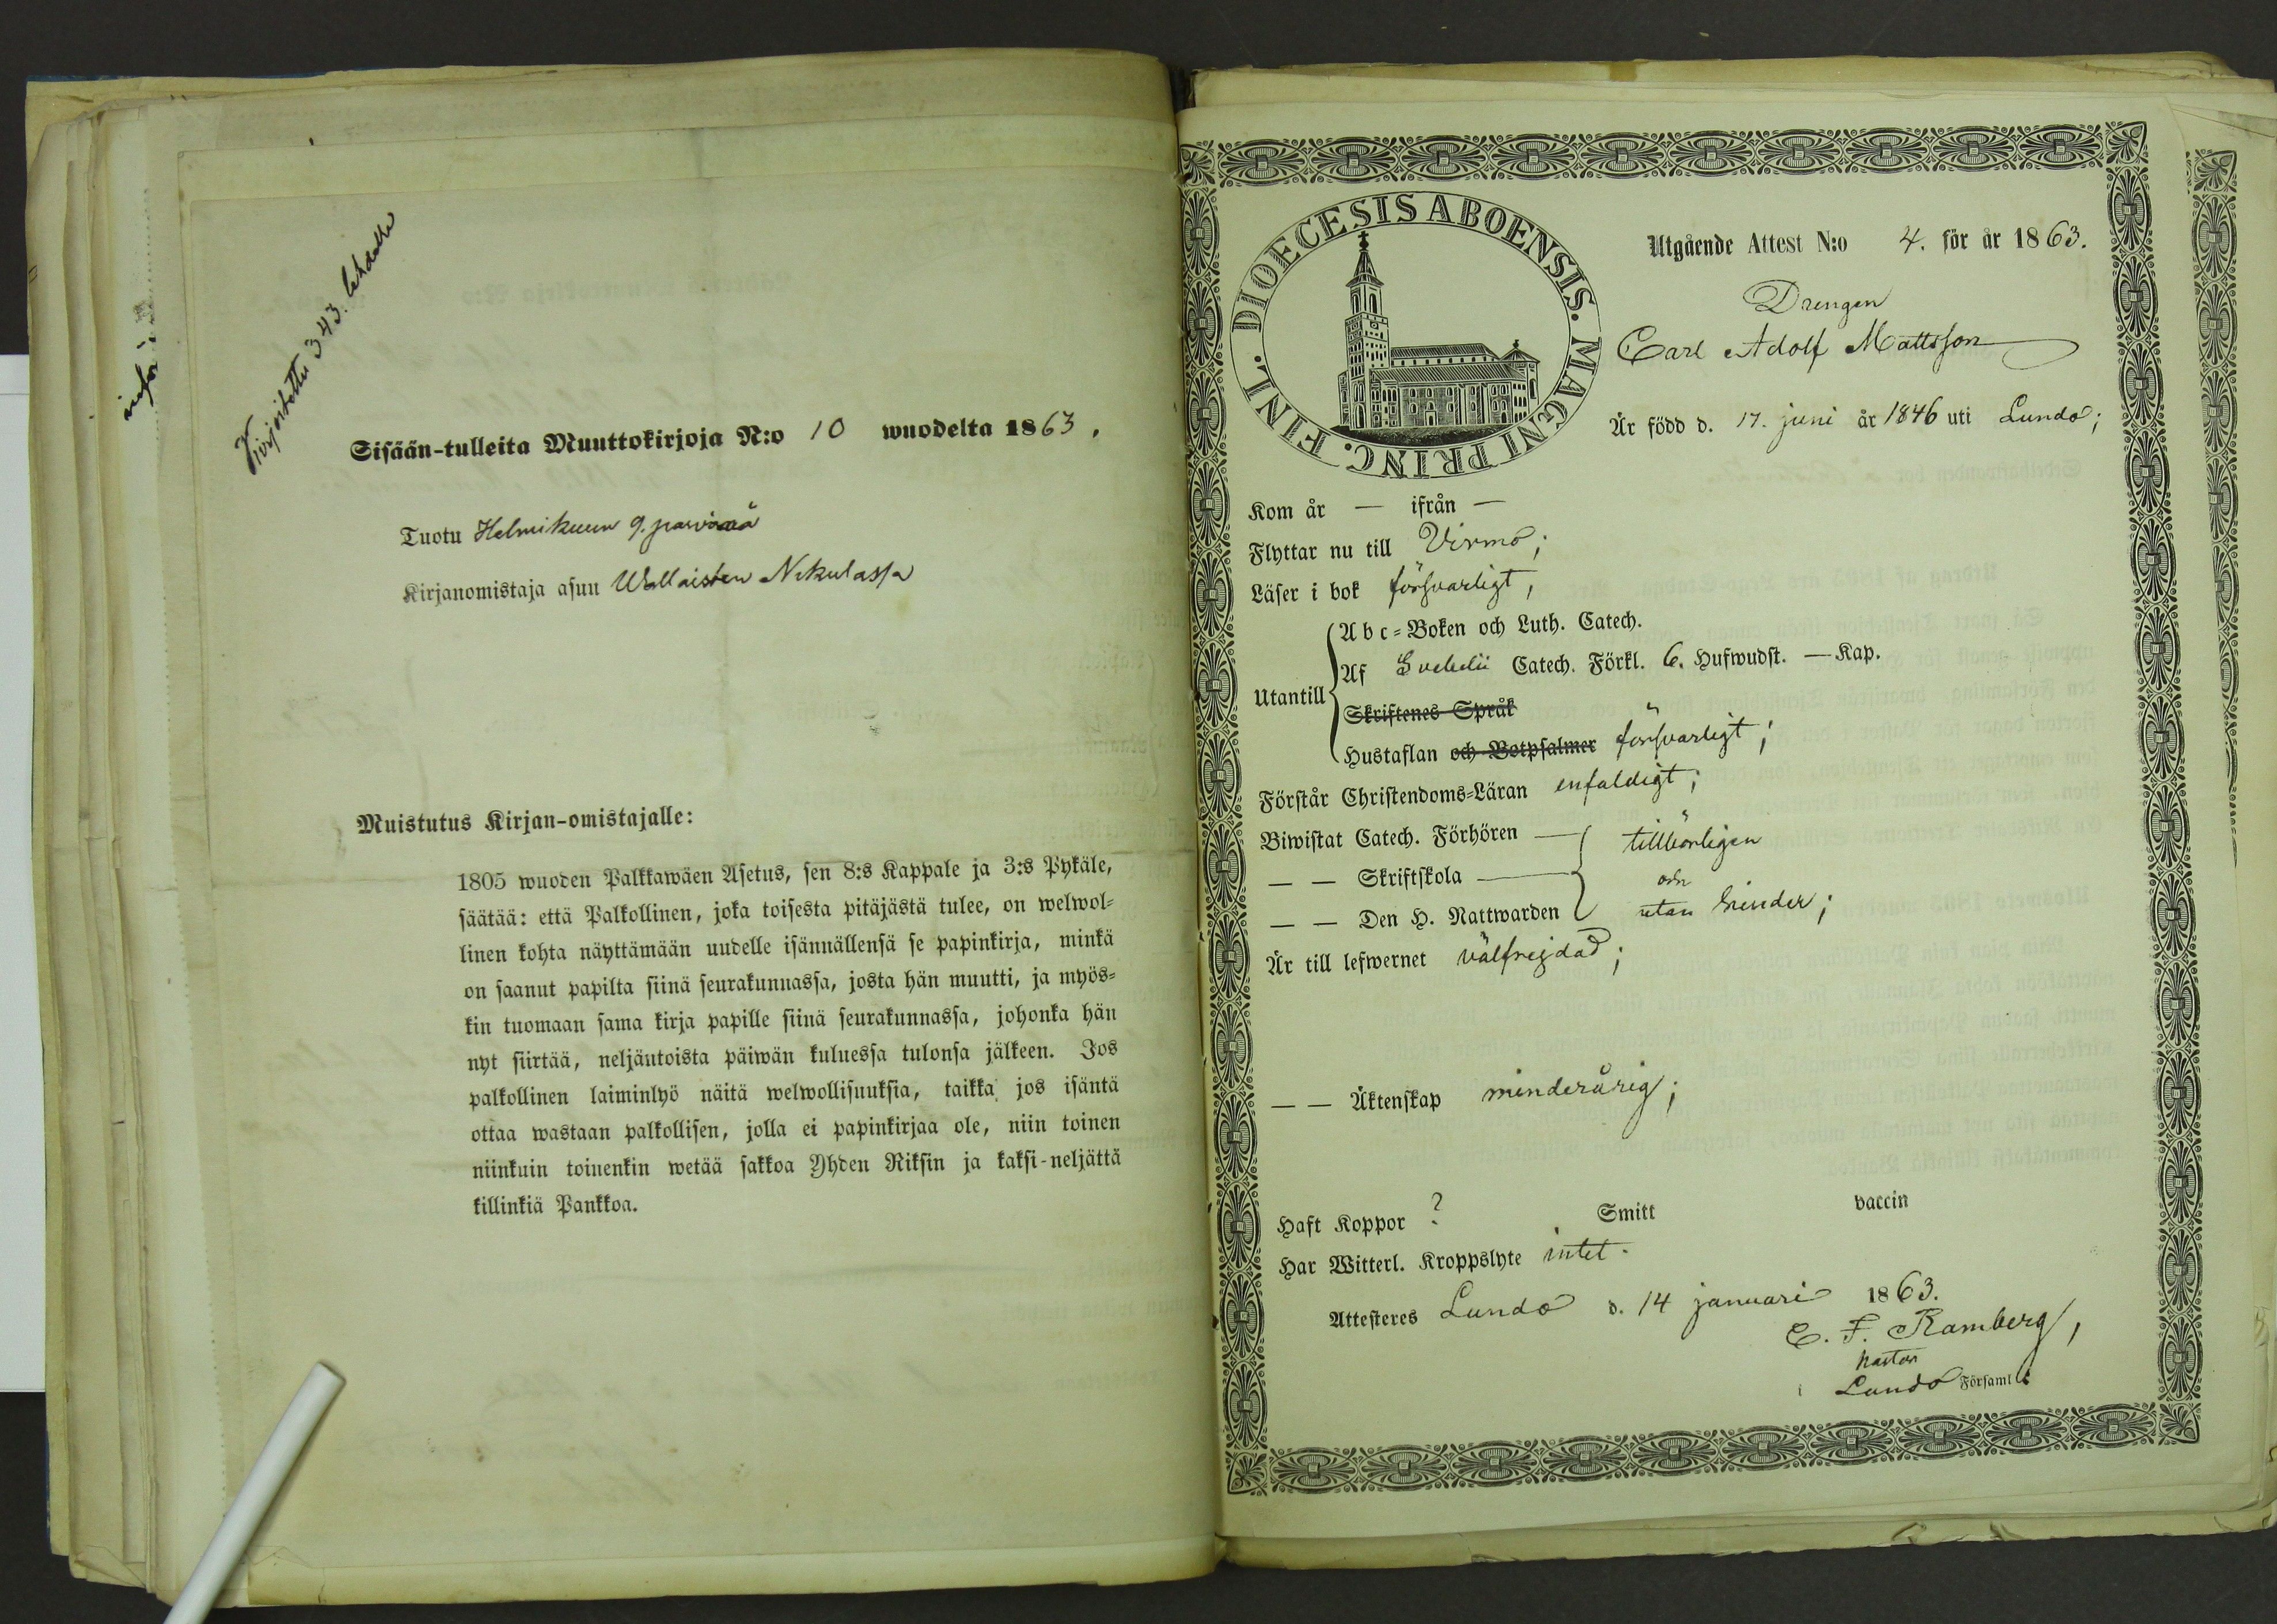 Kirjoitettu 343. lehdellä
Sisään-tulleita Muuttokirjoja N:o 10 wuodelta 1863.
Tuotu Helmikuun 9. päivänä
Kirjanomistaja asuu Wallaisten Nikulassa
Muistutus Kirjan-omistajalle:
1805 wuoden Palkkawäen Asetus, sen 8:s Kappale ja 3:s Pykäle,
säätää: että Palkollinen, joka toisesta pitäjästä tulee, on welwol-
linen kohta näyttämään uudelle isännällensä se papinkirja, minkä
on saanut papilta siinä seurakunnassa, josta hän muutti, ja myös-
kin tuomaan sama kirja papille siinä seurakunnassa, johonka hän
nyt siirtää, neljäntoista päiwän kuluessa tulonsa jälkeen. Jos
palkollinen laiminlyö näitä welwollisuuksia, taikka jos isäntä
ottaa wastaan palkollisen, jolla ei papinkirjaa ole, niin toinen
niinkuin toinenkin wetää sakkoa Yhden Riksin ja kaksi-neljättä
killinkiä Pankkoa.
DIOECESIS ABOENSIS. MAGNI PRINC. FINL.
Utgående Attest N:o 4. för år 1863.
Drengen
Carl Adolf Mattsson
Är född d. 17. juni år 1846 uti Lundo;
Kom år — ifrån —
Flyttar nu till Virmo;
Läser i bok försvarligt,
Utantill
Abc-Boken och Luth. Catech.
Af Svebelii Catech. Förkl. 6. Hufwudst. — Kap.
Skriftenes Språk
Hustaflan och Botpsalmer försvarligt;
Förstår Christendoms-Läran enfaldigt;
Biwistat Catech. Förhören — tillbörligen
— — Skriftskola — och
— — Den H. Nattwarden utan hinder;
Är till lefwernet välfrejdad;
— — Äktenskap minderårig;
Haft Koppor ? Smitt vaccin
Har Witterl. Kroppslyte intet.
Attesteres Lundo d. 14 januari 1863.
E. F. Ramberg,
Pastor
i Lundo Församl.